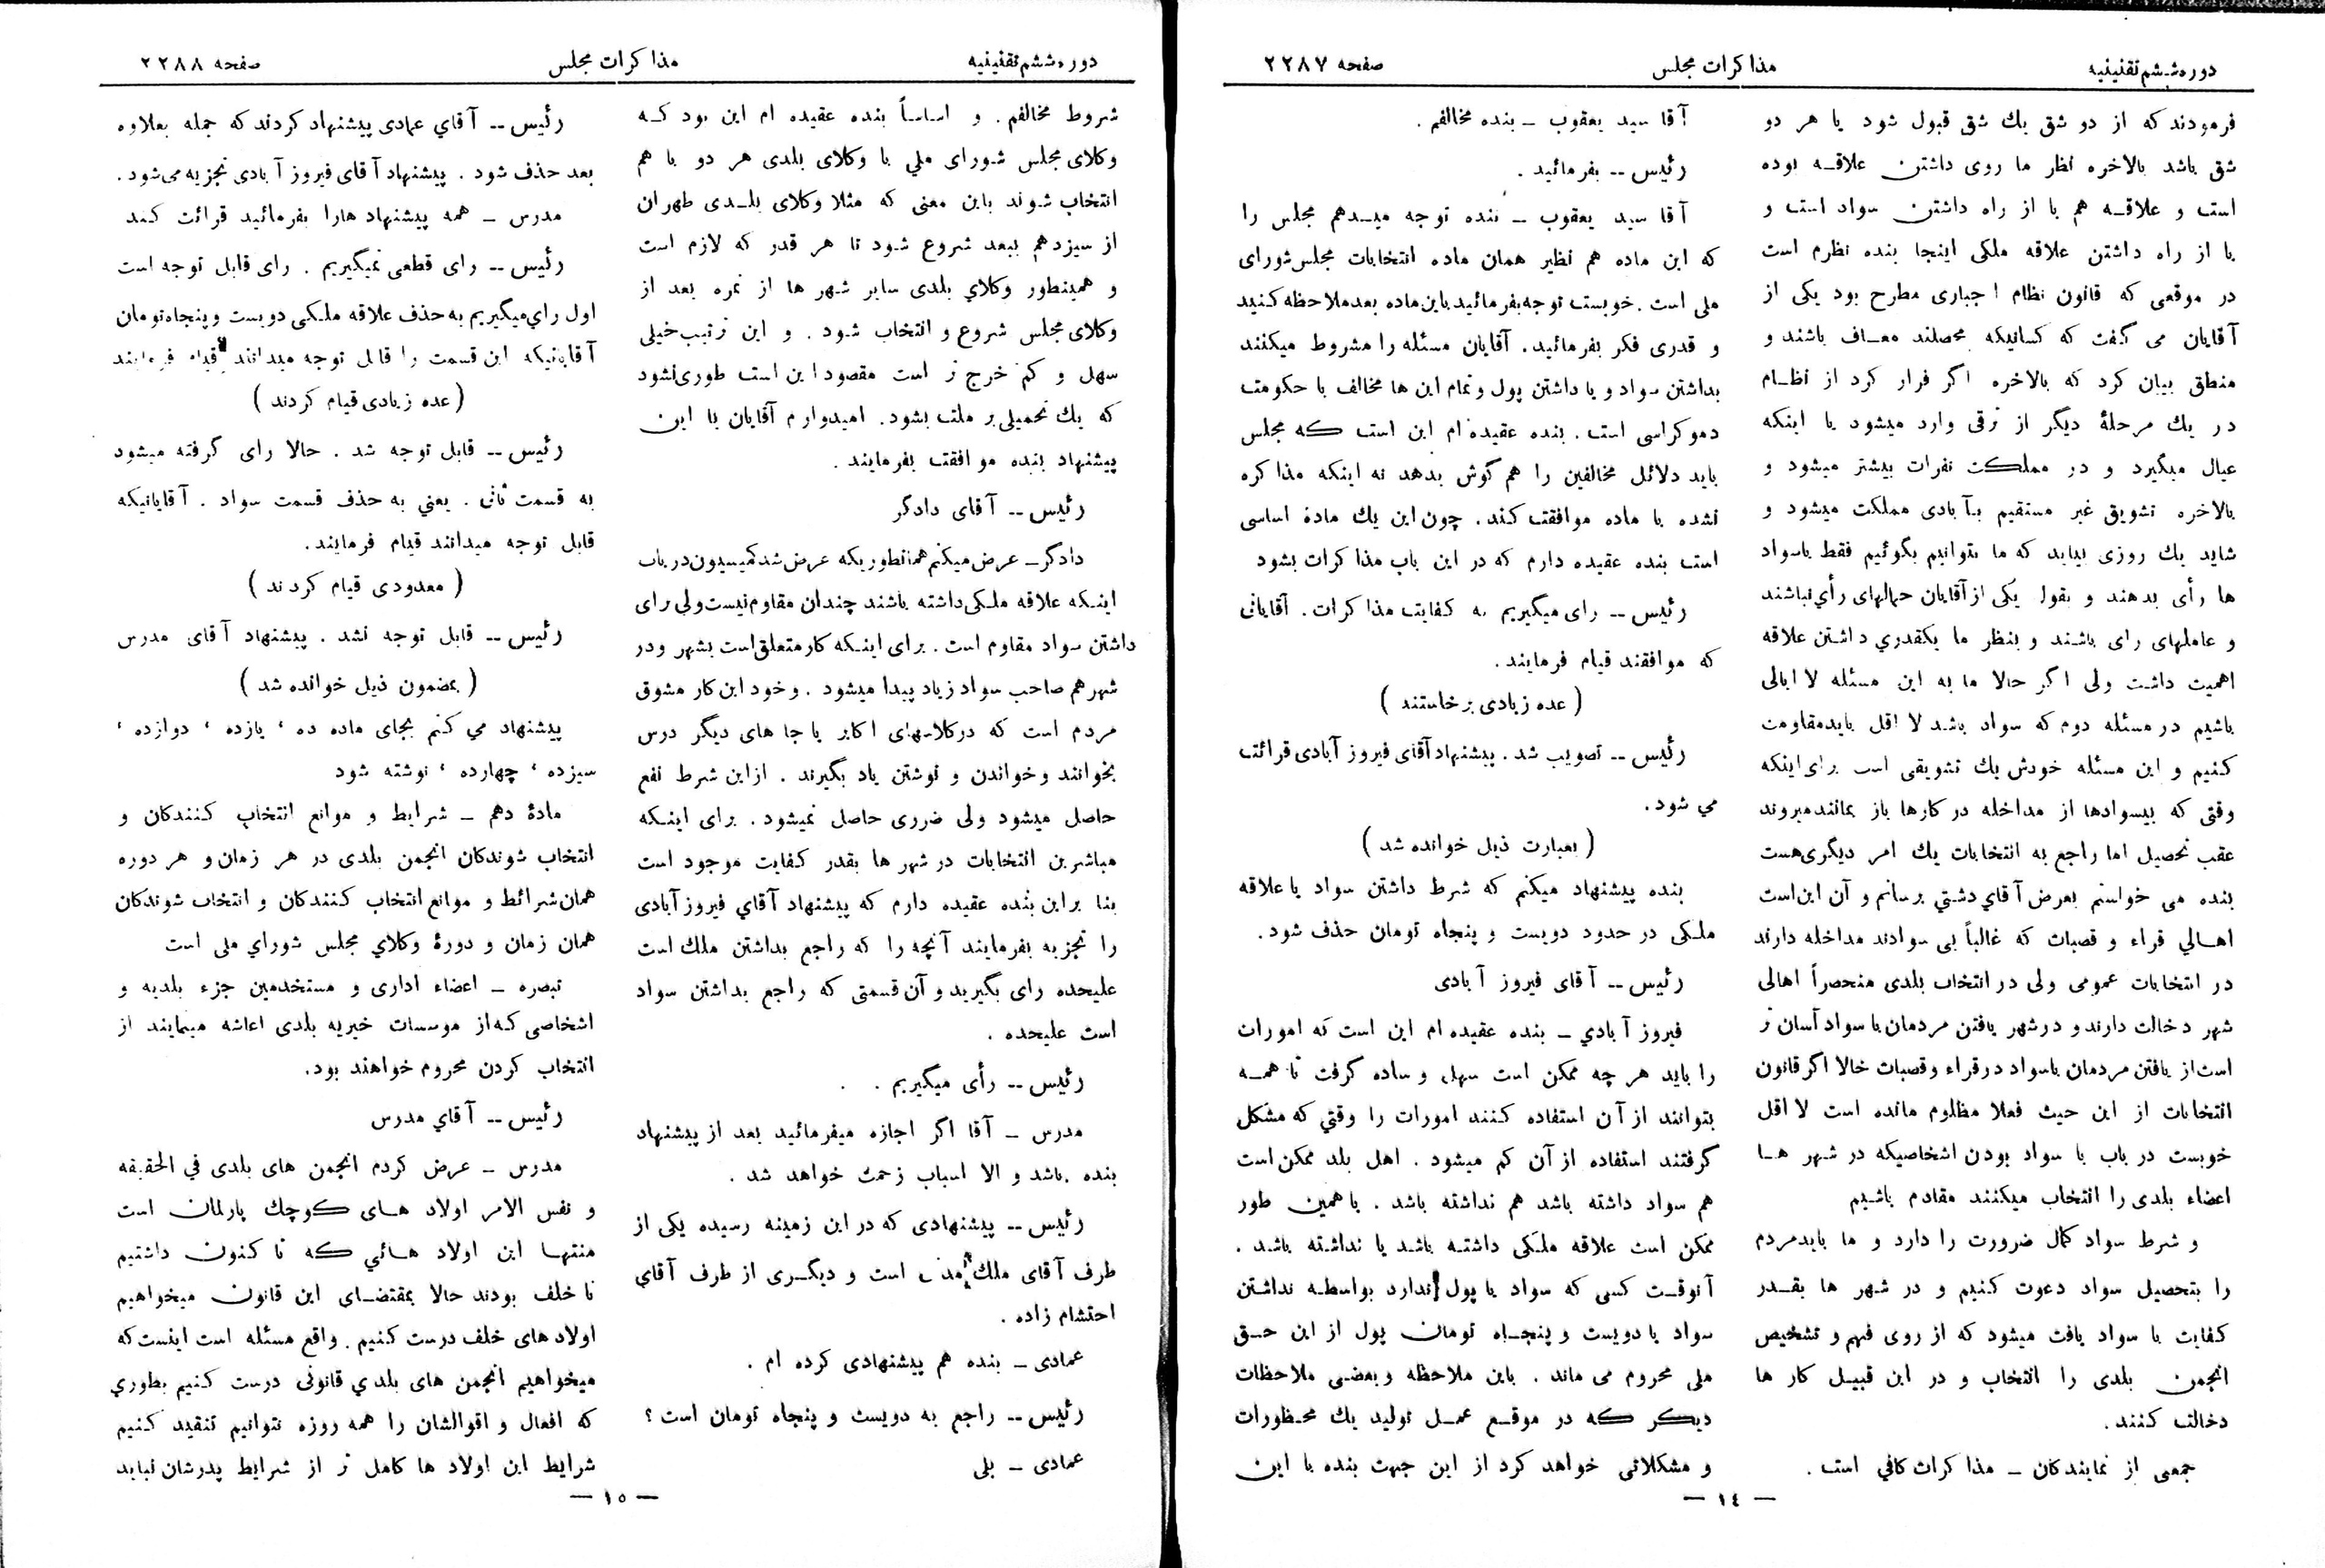 دوره ششم تقنینیه
مذاکرات مجلس
صفحه ۲۲۸۷
فرمودند که از دو شق یك شق قبول شود یا هر دو
شق باشد بالاخره نظر ما روی داشتن علاقه بوده
است و علاقه هم یا از راه داشتن سواد است و
یا از راه داشتن علاقه ملکی اینجا بنده نظرم است
در موقعی که قانون نظام اجباری مطرح بود یکی از
آقایان می گفت که کسانیکه محصلند معاف باشند و
منطق بیان کرد که بالاخره اگر فرار کرد از نظام
در یك مرحلهٔ دیگر از ترقی وارد میشود یا اینکه
عیال میگیرد و در مملکت نفرات بیشتر میشود و
بالاخره تشویق غیر مستقیم بآبادی مملکت میشود و
شاید یك روزی بیاید که ما بتوانیم بگوئیم فقط باسواد
ها رأی بدهند و بقول یکی از آقایان حمالهای رأی نباشند
و عاملهای رای باشند و بنظر ما یکقدري داشتن علاقه
اهمیت داشت ولی اگر حالا ما به این مسئله لا ابالی
باشیم در مسئله دوم که سواد باشد لا اقل باید مقاومت
کنیم و این مسئله خودش یك تشویقی است برای اینکه
وقتی که بیسوادها از مداخله در کارها باز بمانند میروند
عقب تحصیل اما راجع به انتخابات یك امر دیگری هست
بنده می خواستم بعرض آقاي دشتي برسانم و آن این است
اهالي قراء و قصبات که غالباً بی سوادند مداخله دارند
در انتخابات عمومی ولی در انتخاب بلدی منحصراً اهالی
شهر دخالت دارند و در شهر یافتن مردمان با سواد آسان تر
است از یافتن مردمان باسواد در قراء و قصبات حالا اگر قانون
انتخابات از این حیث فعلا مظلوم مانده است لا اقل
خوبست در باب با سواد بودن اشخاصیکه در شهر ها
اعضاء بلدی را انتخاب میکنند مقادم باشیم
و شرط سواد کمال ضرورت را دارد و ما باید مردم
را بتحصیل سواد دعوت کنیم و در شهر ها بقدر
کفایت با سواد یافت میشود که از روی فهم و تشخیص
انجمن بلدی را انتخاب و در این قبیل کار ها
دخالت کنند.
جمعی از نمایندکان ـ مذاکرات کافي است .
آقا سید یعقوب ـ بنده مخالفم .
رئیس -- بفرمائید .
آقا سید یعقوب ـ بنده توجه میدهم مجلس را
که این ماده هم نظیر همان ماده انتخابات مجلس شورای
ملی است . خوبست توجه بفرمائید باین ماده بعد ملاحظه کنید
و قدری فکر بفرمائید. آقایان مسئله را مشروط میکنند
بداشتن سواد و یا داشتن پول و تمام این ها مخالف با حکومت
دموکراسی است . بنده عقیده ام این است که مجلس
باید دلائل مخالفین را هم گوش بدهد نه اینکه مذاکره
نشده با ماده موافقت کند. چون این یك مادهٔ اساسی
است بنده عقیده دارم که در این باب مذاکرات بشود
رئیس -- رای میگیریم به کفایت مذاکرات. آقایانی
که موافقند قیام فرمایند .
( عده زیادی برخاستند )
رئیس -- تصویب شد. پیشنهاد آقای فیروز آبادی قرائت
می شود .
( بعبارت ذیل خوانده شد )
بنده پیشنهاد میکنم که شرط داشتن سواد یا علاقه
ملکی در حدود دویست و پنجاه تومان حذف شود .
رئیس -- آقای فیروز آبادی
فیروز آبادي ـ بنده عقیده ام این است که امورات
را باید هر چه ممکن است سهل و ساده گرفت تا همه
بتوانند از آن استفاده کنند امورات را وقتي که مشکل
گرفتند استفاده از آن کم میشود . اهل بلد ممکن است
هم سواد داشته باشد هم نداشته باشد . یا همین طور
ممکن است علاقه ملکی داشته باشد یا نداشته باشد .
آنوقت کسی که سواد یا پول ندارد بواسطه نداشتن
سواد یا دویست و پنجاه تومان پول از این حق
ملی محروم می ماند . باین ملاحظه و بعضی ملاحظات
دیگر که در موقع عمل تولید یك محظورات
و مشکلاتی خواهد کرد از این جهت بنده با این
— ١٤ —
دوره ششم تقنینیه
مذاکرات مجلس
صفحه ۲۲۸۸
شروط مخالفم . و اساساً بنده عقیده ام این بود که
وکلای مجلس شورای ملی با وکلای بلدی هر دو با هم
انتخاب شوند باین معنی که مثلا وکلای بلدی طهران
از سیزدهم ببعد شروع شود تا هر قدر که لازم است
و همینطور وکلاي بلدی سایر شهر ها از نمره بعد از
وکلای مجلس شروع و انتخاب شود . و این ترتیب خیلی
سهل و کم خرج تر است مقصود این است طوری نشود
که یك تحمیلی بر ملت بشود. امیدوارم آقایان با این
پیشنهاد بنده موافقت بفرمایند .
رئیس -- آقای دادگر
دادگر ـ عرض میکنم همانطوریکه عرض شد کمیسیون در باب
اینکه علاقه ملکی داشته باشند چندان مقاوم نیست ولی برای
داشتن سواد مقاوم است . برای اینکه کار متعلق است بشهر و در
شهر هم صاحب سواد زیاد پیدا میشود . و خود این کار مشوق
مردم است که در کلاسهای اکابر یا جا های دیگر درس
بخوانند و خواندن و نوشتن یاد بگیرند . از این شرط نفع
حاصل میشود ولی ضرری حاصل نمیشود . برای اینکه
مباشرین انتخابات در شهر ها بقدر کفایت موجود است
بنا براین بنده عقیده دارم که پیشنهاد آقاي فیروز آبادی
را تجزیه بفرمایند آنچه را که راجع بداشتن ملك است
علیحده رای بگیرید و آن قسمتی که راجع بداشتن سواد
است علیحده .
رئیس -- رأی میگیریم .
مدرس ـ آقا اگر اجازه میفرمائید بعد از پیشنهاد
بنده باشد و الا اسباب زحمت خواهد شد .
رئیس -- پیشنهادی که در این زمینه رسیده یکی از
طرف آقای ملك است و دیگری از طرف آقاي
احتشام زاده .
عمادی ـ بنده هم پیشنهادی کرده ام .
رئیس -- راجع به دویست و پنجاه تومان است ؟
عمادی ـ بلی
رئیس -- آقاي عمادی پیشنهاد کردند که جمله بعلاوه
بعد حذف شود . پیشنهاد آقای فیروز آبادی تجزیه می شود .
مدرس ـ همه پیشنهاد هارا بفرمائید قرائت کنند
رئیس -- رای قطعی نمیگیریم . رای قابل توجه است
اول راي میگیریم به حذف علاقه ملکی دویست و پنجاه تومان
آقایانیکه این قسمت را قابل توجه میدانند قیام فرمایند
( عده زیادی قیام کردند )
رئیس -- قابل توجه شد . حالا رای گرفته میشود
به قسمت ثانی . یعني به حذف قسمت سواد . آقایانیکه
قابل توجه میدانند قیام فرمایند.
( معدودی قیام کردند )
رئیس -- قابل توجه نشد . پیشنهاد آقای مدرس
( بمضمون ذیل خوانده شد )
پیشنهاد مي کنم بجای ماده ده ، یازده ، دوازده ،
سیزده ، چهارده ، نوشته شود
مادهٔ دهم ـ شرایط و موانع انتخاب کنندکان و
انتخاب شوندکان انجمن بلدی در هر زمان و هر دوره
همان شرائط و موانع انتخاب کنندکان و انتخاب شوندکان
همان زمان و دورهٔ وکلاي مجلس شوراي ملی است
تبصره ـ اعضاء اداری و مستخدمین جزء بلدیه و
اشخاصی که از موسسات خیریه بلدی اعاشه مینمایند از
انتخاب کردن محروم خواهند بود.
رئیس -- آقاي مدرس
مدرس ـ عرض کردم انجمن های بلدی في الحقیقه
و نفس الامر اولاد های کوچك پارلمان است
منتها این اولاد هائي که تا کنون داشتیم
نا خلف بودند حالا بمقتضای این قانون میخواهیم
اولاد های خلف درست کنیم . واقع مسئله است اینست که
میخواهیم انجمن های بلدي قانونی درست کنیم بطوري
که افعال و اقوالشان را همه روزه نتوانیم تنقید کنیم
شرایط این اولاد ها کامل تر از شرایط پدرشان نباید
— ١٥ —